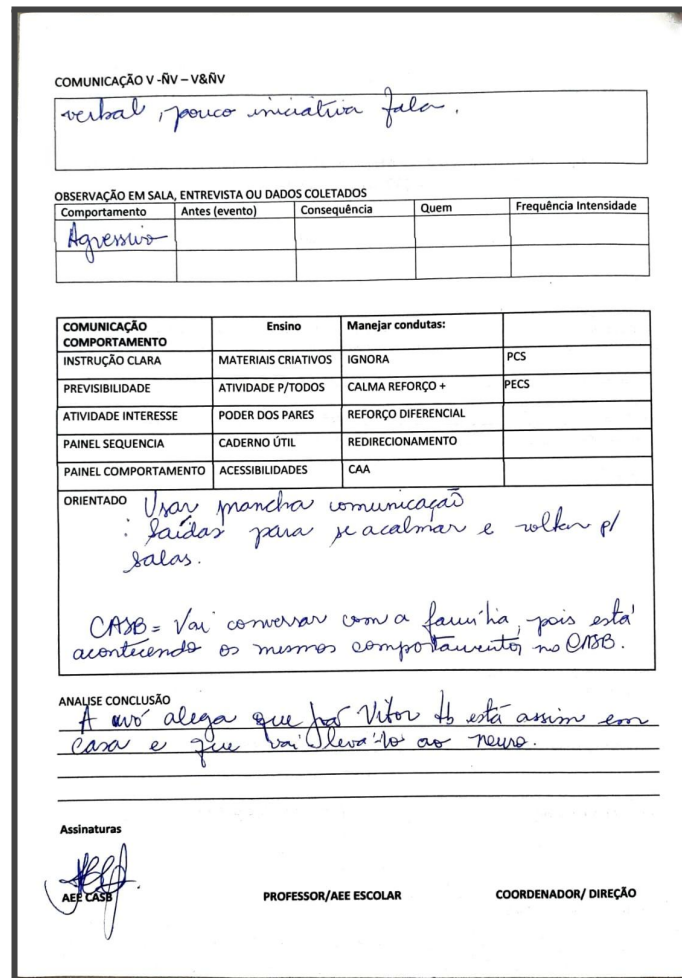 COMUNICAÇÃO V -ÑV – V&ÑV
verbal, pouco iniciativa fala.
OBSERVAÇÃO EM SALA, ENTREVISTA OU DADOS COLETADOS
Comportamento Antes (evento) Consequência Quem Frequência Intensidade
Agressivo
COMUNICAÇÃO COMPORTAMENTO Ensino Manejar condutas:
INSTRUÇÃO CLARA MATERIAIS CRIATIVOS IGNORA PCS
PREVISIBILIDADE ATIVIDADE P/TODOS CALMA REFORÇO + PECS
ATIVIDADE INTERESSE PODER DOS PARES REFORÇO DIFERENCIAL
PAINEL SEQUENCIA CADERNO ÚTIL REDIRECIONAMENTO
PAINEL COMPORTAMENTO ACESSIBILIDADES CAA
ORIENTADO Usar prancha comunicação
: Saídas para se acalmar e voltar p/
salas.
CASB = Vai conversar com a família, pois está
acontecendo os mesmos comportamentos no CASB.
ANALISE CONCLUSÃO
A avó alega que Vitor está assim em
casa e que vai leva-lo ao neuro.
Assinaturas
AEE CASB PROFESSOR/AEE ESCOLAR COORDENADOR/ DIREÇÃO